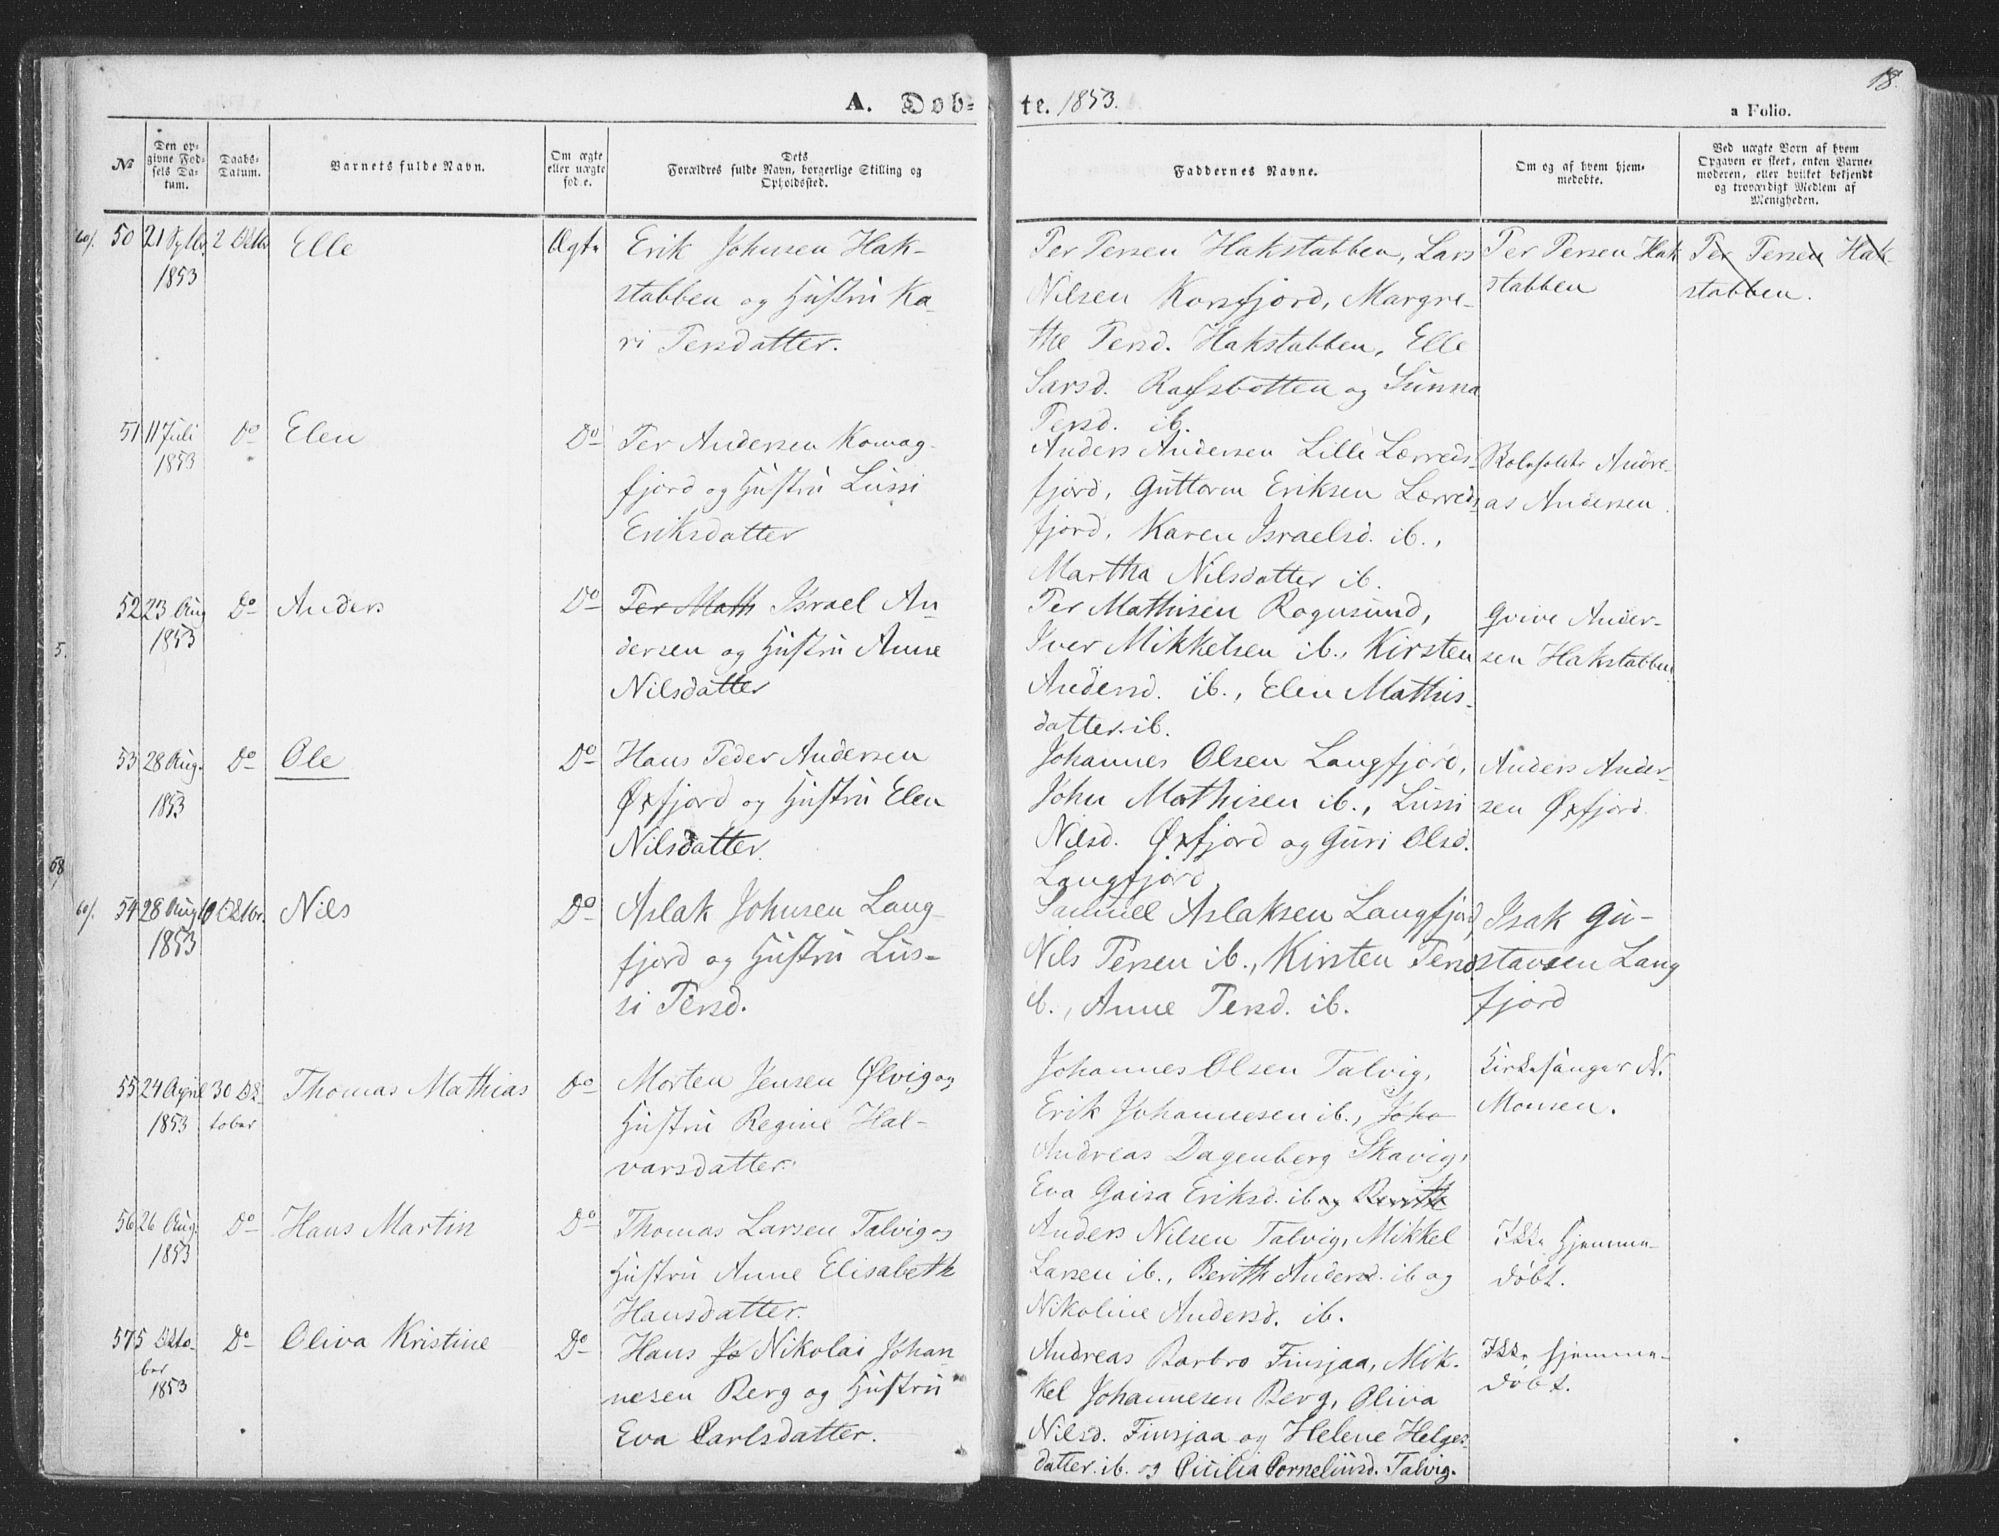 18.
A. Døb-
te. 1853.
a Folio.
No
Den op-
givne Fød-
sels Da-
tum.
Daabs-
Datum.
Barnets fulde Navn.
Om ægte
eller uægte
fød.e.
Dets
Forældres fulde Navn, borgerlige Stilling og
Opholdssted.
Faddernes Navne.
Om og af hvem hjem-
medøbte.
Ved uægte Børn af hvem
Opgaven er skeet, enten Barne-
moderen, eller hvilket bekjendt
og troværdigt Medlem af
Menigheden.
50 21 Septbr 2 Oktbr Elle Ægte Erik Johnsen Hak-
1853 stabben og Hustru Ka-
ri Persdatter.
Per Persen Hakstabben, Lars
Nilsen Korsfjord, Margre-
the Persd. Hakstabben, Elle
Larsd. Rafsbotten og Sunna
Persd. ib.
Per Persen Hak
stabben
Per Persen Hak-
stabben.
51 11 Juli Do Elen Do Per Andersen Komag-
1853 fjord og Hustru Lussi
Eriksdatter
Anders Andersen Lille Lerreds-
fjord, Guttorm Eriksen Lerreds
fjord, Karen Israelsd. ib.,
Martha Nilsdatter ib.
Andre-
as Andersen
52 23 Aug Do Anders Do Per Math Israel An-
1853 dersen og Hustru Anne
Nilsdatter
Per Mathisen Rognsund,
Iver Mikkelsen ib., Kirsten
Andersd. ib., Elen Mathis-
datter ib.
Ander-
sen Hakstabben
5.
53 28 Aug. Do Ole Do Hans Peder Andersen
1853 Øxfjord og Hustru Elen
Nilsdatter.
Johannes Olsen Langfjord,
John Mathisen ib., Lussi
Nilsd. Øxfjord og Guri Olsd.
Langfjord
Anders Ander-
sen Øxfjord
54 28 Aug 10 Oktbr. Nils Do Aslak Johnsen Lang-
1853 fjord og Hustru Lus-
si Persd.
Samuel Aslaksen Langfjord,
Nils Persen ib., Kirsten Persd
ib., Anne Persd. ib.
Isak Gu-
stavsen Lang
fjord
55 24 April 30 Ok- Thomas Mathias Do Morten Jensen Ølvig og
1853 tober Hustru Regine Hal-
varsdatter.
Johannes Olsen Talvig,
Erik Johannesen ib., Joha
Andreas Dagenberg Skavig,
Eva Gaisa Eriksd. ib og Berith
Kirkesanger N.
Monsen.
56 26 Aug. Do Hans Martin Do Thomas Larsen Talvig og
1853 Hustru Anne Elisabeth
Hansdatter.
Anders Nilsen Talvig, Mikkel
Larsen ib., Berith Andersd. ib og
Nikoline Andersd. ib.
Ikke hjemme-
døbt.
57 5 Okto- Do Oliva Kristine Do Hans Jo Nikolai Johan-
ber
1853 nesen Berg og Hustru
Eva Carlsdatter.
Andreas Barbro Finsjaa, Mik-
kel Johannesen Berg, Oliva
Nilsd. Finsjaa og Helene Helges-
datter ib. og Cicilia Corneliusd. Talvig.
Ikke hjemme-
døbt.